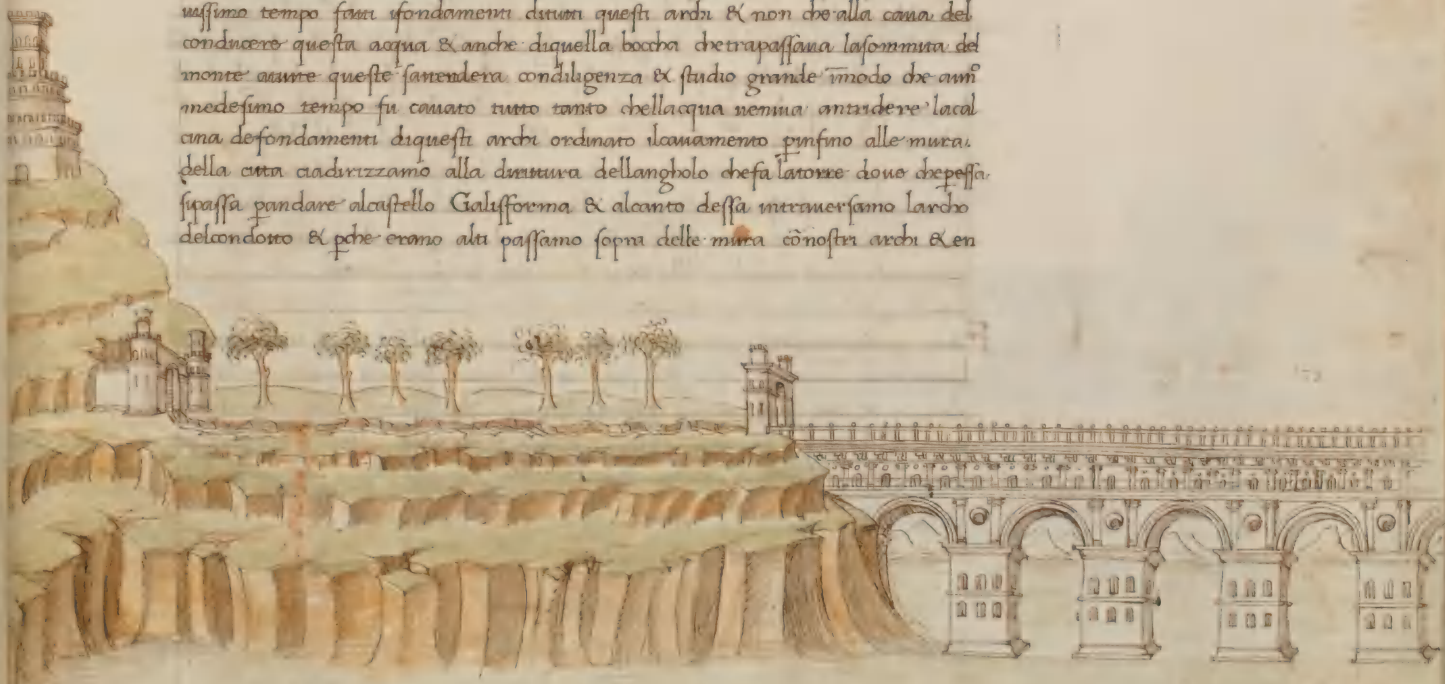 uissimo tempo fatti ifondamenti ditutti questi archi & non che alla caua del
conducere questa acqua & anche diquella boccha chetrapassaua lasommita del
monte atutte queste sattendeua condiligenza & studio grande ĩmodo che aunº
medesimo tempo fu cauato tutto tanto chellacqua neniua antridere lacal
cina defondamenti diquesti archi ordinato ilcauamento ꝑinfino alle mura.
della citta ciadirizzamo alla dirittura dellangholo chefa latorre doue cheꝑessa
sipassa ꝑandare alcastello Galisforma & alcanto dessa intrauersamo larcho
delcondotto & ꝑche erano alti passamo sopra delle mura cõnostri archi & en